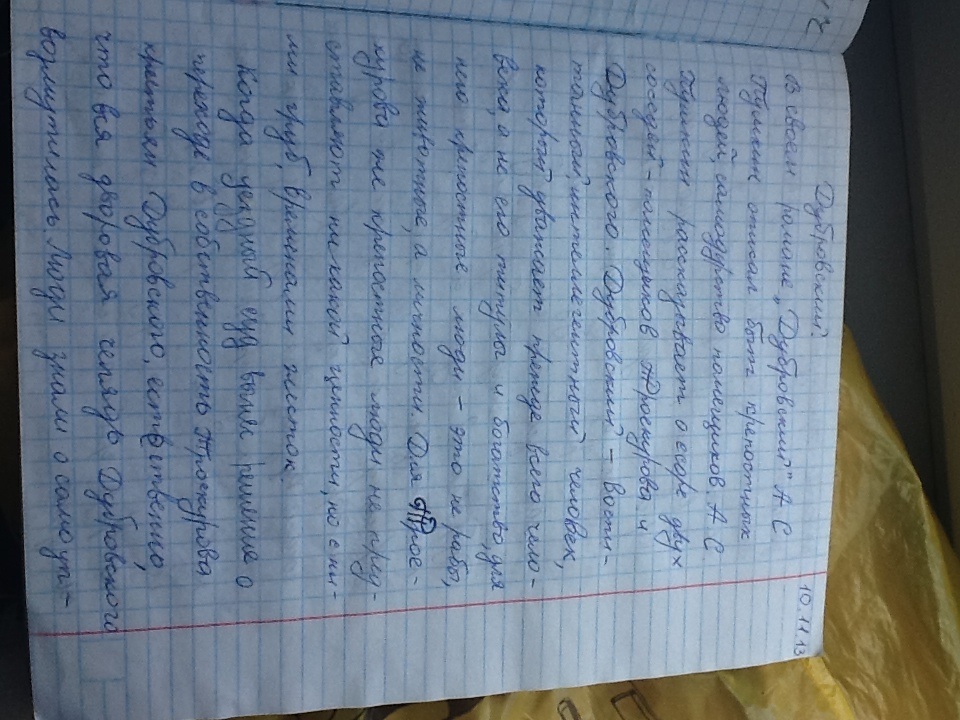 10.11.13
Дубровский
В своем романе „Дубровский" А С
Пушкин описал быт крепостных
людей, самодурство помещиков. А С
Пушкин рассказывает о ссоре двух
соседей - помещиков Троекурова и
Дубровского. Дубровский - воспи-
танный, интеллегентный человек,
который уважает прежде всего чело-
века, а не его титулы и богатство, для
него крепостные люди - это не рабы,
не животные, а личности. Для Трое-
курова же крепостные люди не пред-
ставляют никакой ценности, но с ни-
ми груб, временами жесток.
Когда уездный суд вынес решение о
переходе в собственность Троекурова
крестьян Дубровского, естественно,
что вся дворовая челядь Дубровского
возмутилась. Люди знали о самоуп-